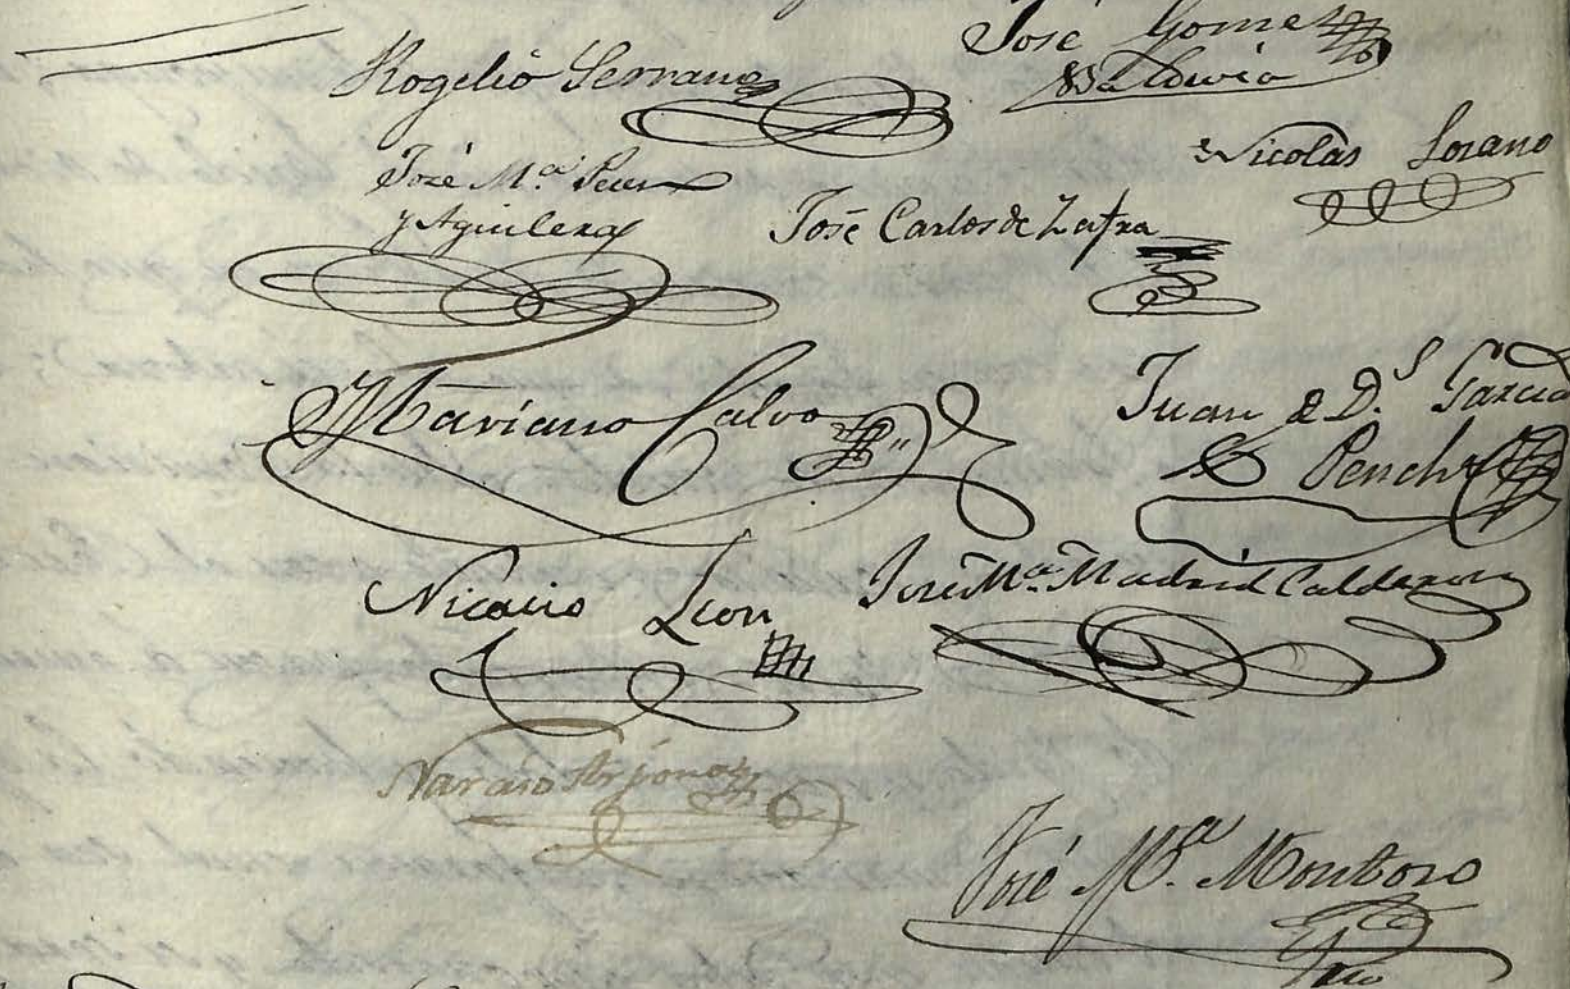 Rogelio Serrano
José Gomez
Valdivia
José Mª. Perez
y Aguilera
Nicolas Lozano
José Carlos de Zafra
Mariano Calvo
Juan de D.ˢ Garcia
Penche
Nicacio Leon
José Mª. Madrid Calderon
Narciso Arjona
José Mª. Montoro
Srio